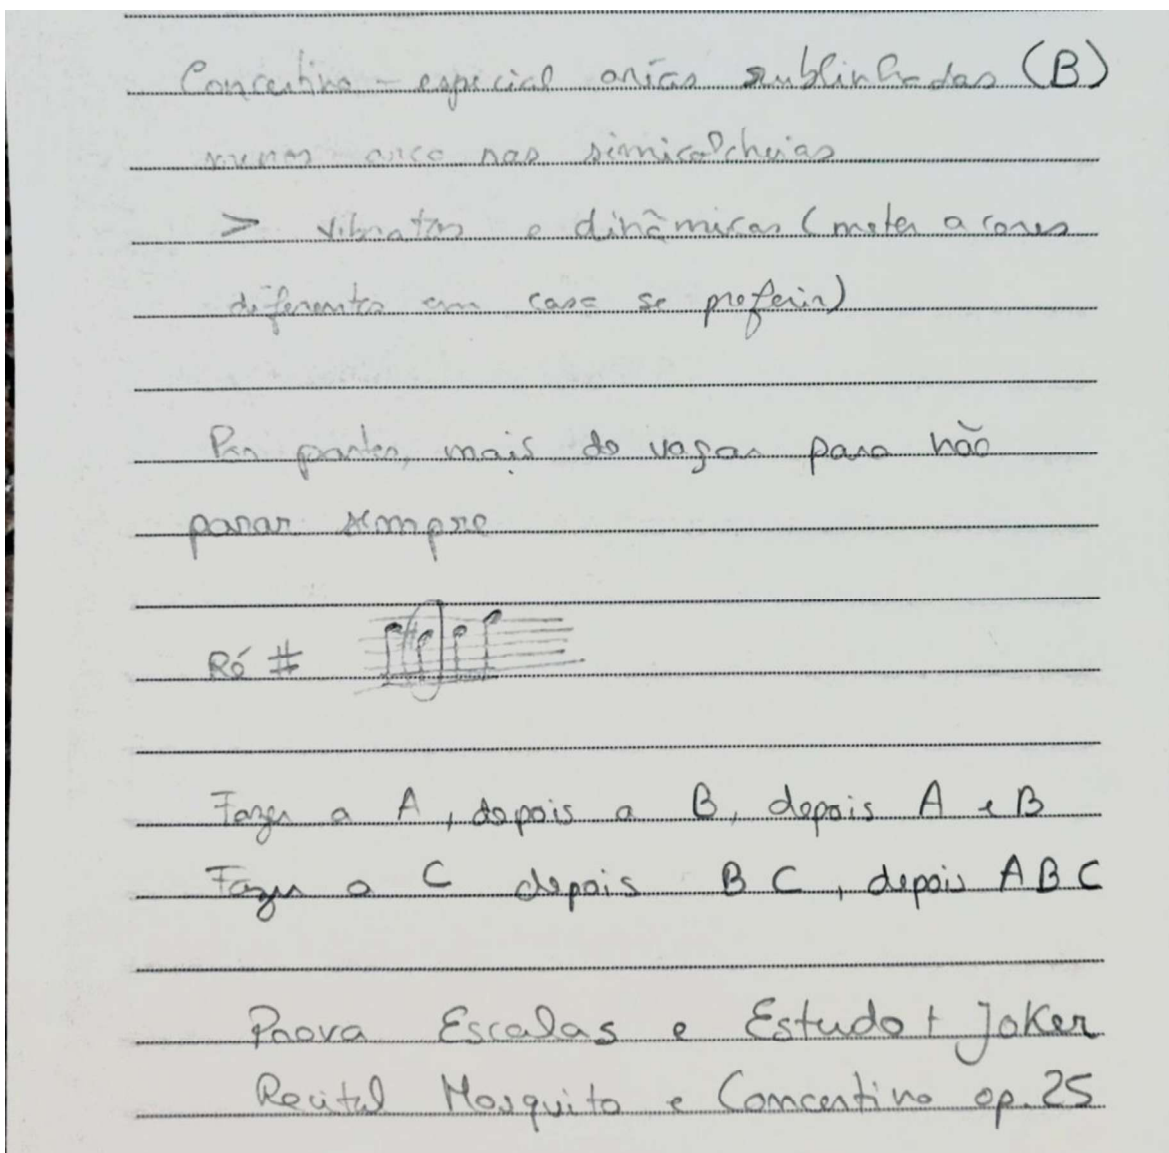 Concertino - especial areas sublinhadas (B)
menos arco nas semicolcheias
> vibratos e dinâmicas (meter a cores
diferentes em casa se preferir)
Por partes, mais de vagar para não
parar sempre
Ré #
Fazer a A, depois a B, depois A e B
Fazer o C depois B C, depois A B C
Prova Escalas e Estudo + Joker
Recital Mosquito e Concertino op.25